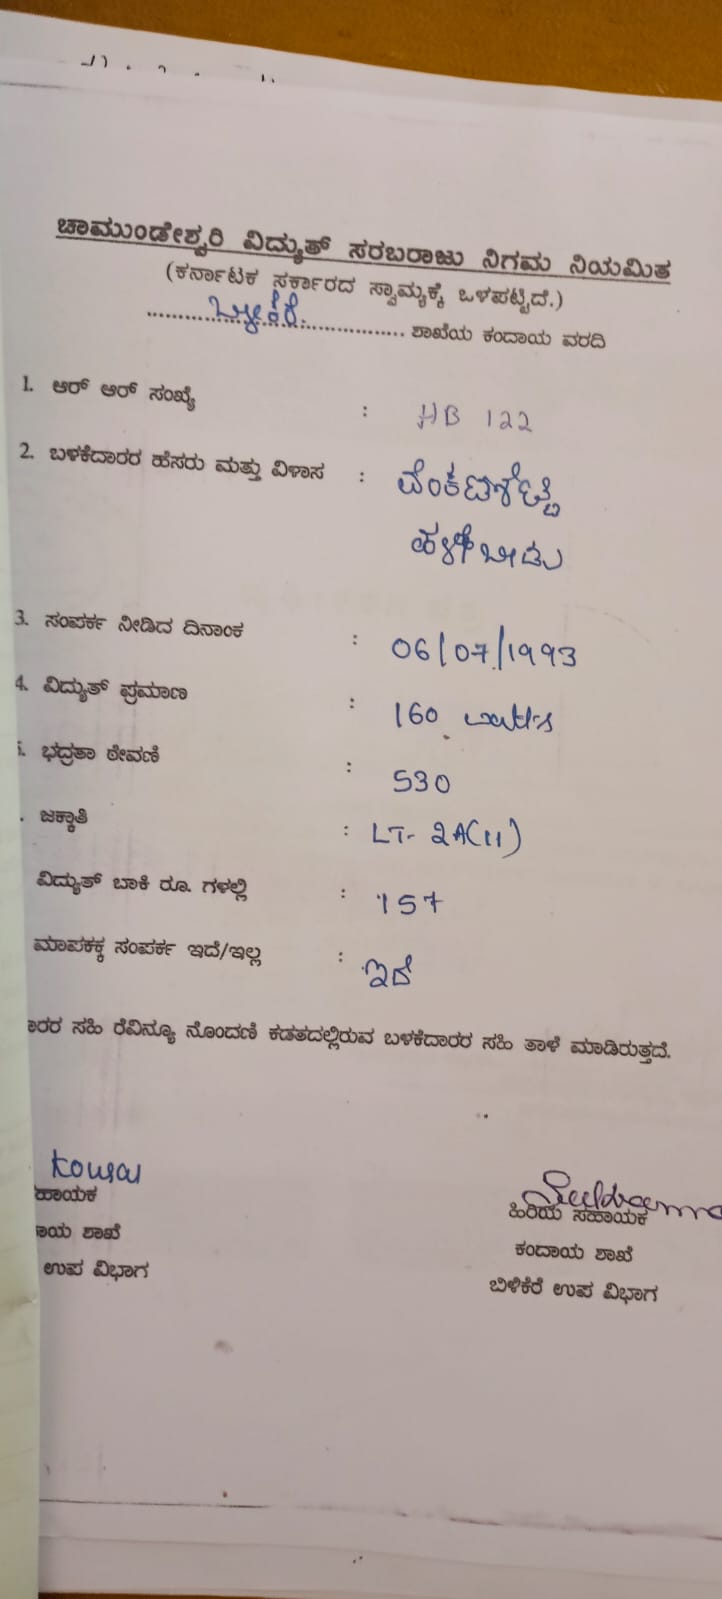 ಚಾಮುಂಡೇಶ್ವರಿ ವಿದ್ಯುತ್ ಸರಬರಾಜು ನಿಗಮ ನಿಯಮಿತ
(ಕರ್ನಾಟಕ ಸರ್ಕಾರದ ಸ್ವಾಮ್ಯಕ್ಕೆ ಒಳಪಟ್ಟಿದೆ.)
ಶಾಖೆಯ ಕಂದಾಯ ವರದಿ
1. ಆರ್ ಆರ್ ಸಂಖ್ಯೆ : HB 122
2. ಬಳಕೆದಾರರ ಹೆಸರು ಮತ್ತು ವಿಳಾಸ : ವೆಂಕಟಶೆಟ್ಟಿ
ಹಳೇಬೀಡು
3. ಸಂಪರ್ಕ ನೀಡಿದ ದಿನಾಂಕ : 06/07/1993
4. ವಿದ್ಯುತ್ ಪ್ರಮಾಣ : 160 watts
. ಭದ್ರತಾ ಠೇವಣಿ : 530
. ಜಕ್ಕಾತಿ : LT- 2A(11)
ವಿದ್ಯುತ್ ಬಾಕಿ ರೂ. ಗಳಲ್ಲಿ : 157
ಮಾಪಕಕ್ಕೆ ಸಂಪರ್ಕ ಇದೆ/ಇಲ್ಲ : ಇದೆ
ದಾರರ ಸಹಿ ರೆವಿನ್ಯೂ ನೊಂದಣಿ ಕಡತದಲ್ಲಿರುವ ಬಳಕೆದಾರರ ಸಹಿ ತಾಳೆ ಮಾಡಿರುತ್ತದೆ.
ಹಾಯಕ
ಹಿರಿಯ ಸಹಾಯಕ
ಾಯ ಶಾಖೆ
ಕಂದಾಯ ಶಾಖೆ
ಉಪ ವಿಭಾಗ
ಬಿಳಿಕೆರೆ ಉಪ ವಿಭಾಗ